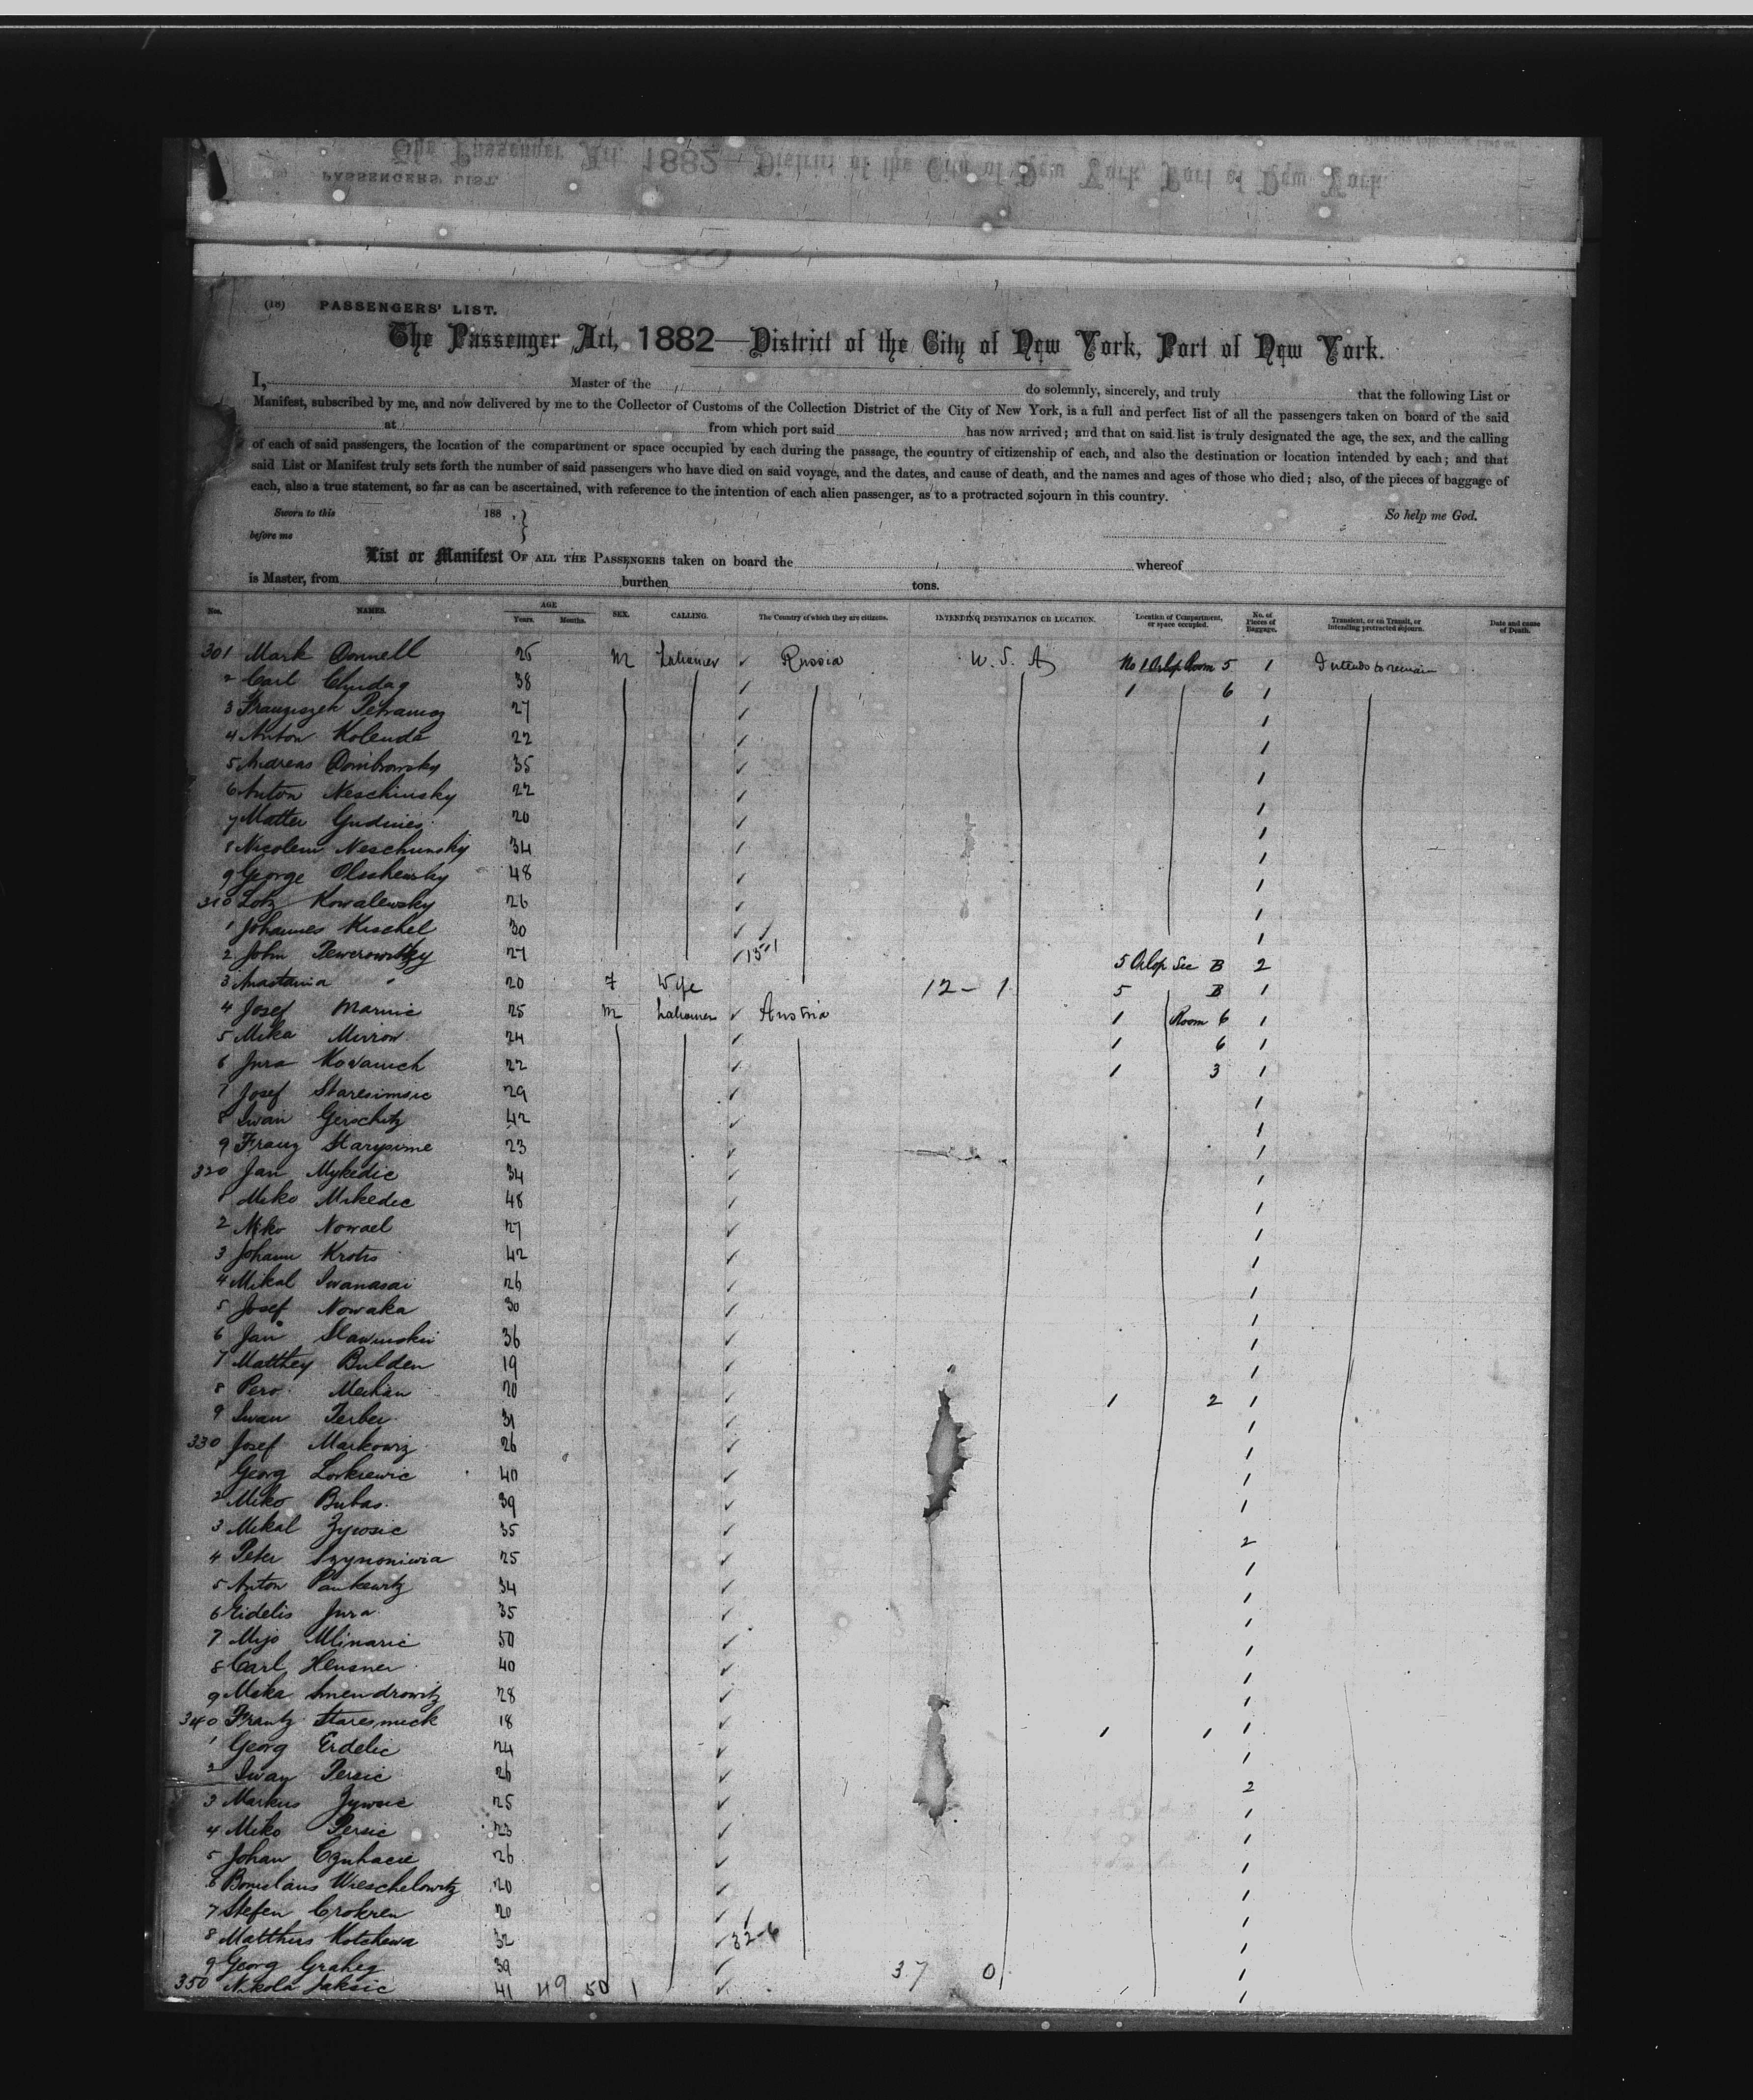 (18) PASSENGERS' LIST.
The Passenger Act, 1882—District of the City of New York, Port of New York.
I, Master of the do solemnly, sincerely, and truly that the following List or
Manifest, subscribed by me, and now delivered by me to the Collector of Customs of the Collection District of the City of New York, is a full and perfect list of all the passengers taken on board of the said
at from which port said has now arrived; and that on said list is truly designated the age, the sex, and the calling
of each of said passengers, the location of the compartment or space occupied by each during the passage, the country of citizenship of each, and also the destination or location intended by each; and that
said List or Manifest truly sets forth the number of said passengers who have died on said voyage, and the dates, and cause of death, and the names and ages of those who died; also, of the pieces of baggage of
each, also a true statement, so far as can be ascertained, with reference to the intention of each alien passenger, as to a protracted sojourn in this country.
Sworn to this 188 . } So help me God.
before me
List or Manifest OF ALL THE PASSENGERS taken on board the whereof
is Master, from burthen tons.
Nos. NAMES. AGE Years. Months. SEX. CALLING. The Country of which they are citizens. INTENDING DESTINATION OR LOCATION. Location of Compartment, or space occupied. No. of Pieces of Baggage. Transient, or on Transit, or intending protracted sojourn. Date and cause of Death.
301 Mark Donnell 25 M Labourer Russia U.S.A No 1 Orlop Room 5 1 Intends to remain
2 Carl 38 1 6 1
3 Franziszek 27 1
4 Anton Kolenda 22 1
5 Andreas Dombrowsky 35 1
6 Anton Neschinsky 22 1
7 Matter 20 1
8 Neschunsky 34 1
9 George Olschewsky 48 1
310 Kowalewsky 26 1
1 Johannes Kischel 30 1
2 John 27 15-1 5 Orlop Sec B 2
3 Anastasia " 20 F Wife 12-1 5 B 1
4 Josef Marinic 25 M Labourer Austria 1 Room 6 1
5 Mika Mirron 24 1 6 1
6 Jura 22 1 3 1
7 Josef Staresimsic 29 1
8 Iwan Gerschitz 42 1
9 Franz 23 1
320 Jan Mykedic 34 1
1 Miko Mikedec 48 1
2 Miko Nowael 27 1
3 Johann Krotis 42 1
4 Mikal Iwanasai 26 1
5 Josef Nowaka 30 1
6 Jan Slawinskii 36 1
7 Matthey Bulden 19 1
8 Pero Mechan 20 1 2 1
9 Iwan Terbei 31 1
330 Josef Markowiz 26 1
1 Georg Lorkiewic 40 1
2 Miko Bubas 39 1
3 Mikal Zywosic 35
4 Peter 25 2
5 Anton Pankewitz 34 1
6 Eidelis Jura 35 1
7 Mijo Mlinaric 50 1
8 Carl Heusner 40 1
9 Mika Smendrowitz 28 1
340 Frantz 18 1 1 1
1 Georg Erdelic 24 1
2 Iwan Persic 26 2
3 Markus Zywosic 25 1
4 Miko Persic 23 1
5 Johan 26 1
6 Wieschelowitz 20 1
7 Stefen Crokren 20 1
8 Matthus Kotchewa 32 32-6 1
9 Georg Graheg 39 37 0 1
350 Nikola Jaksic 41 49 50 1 1